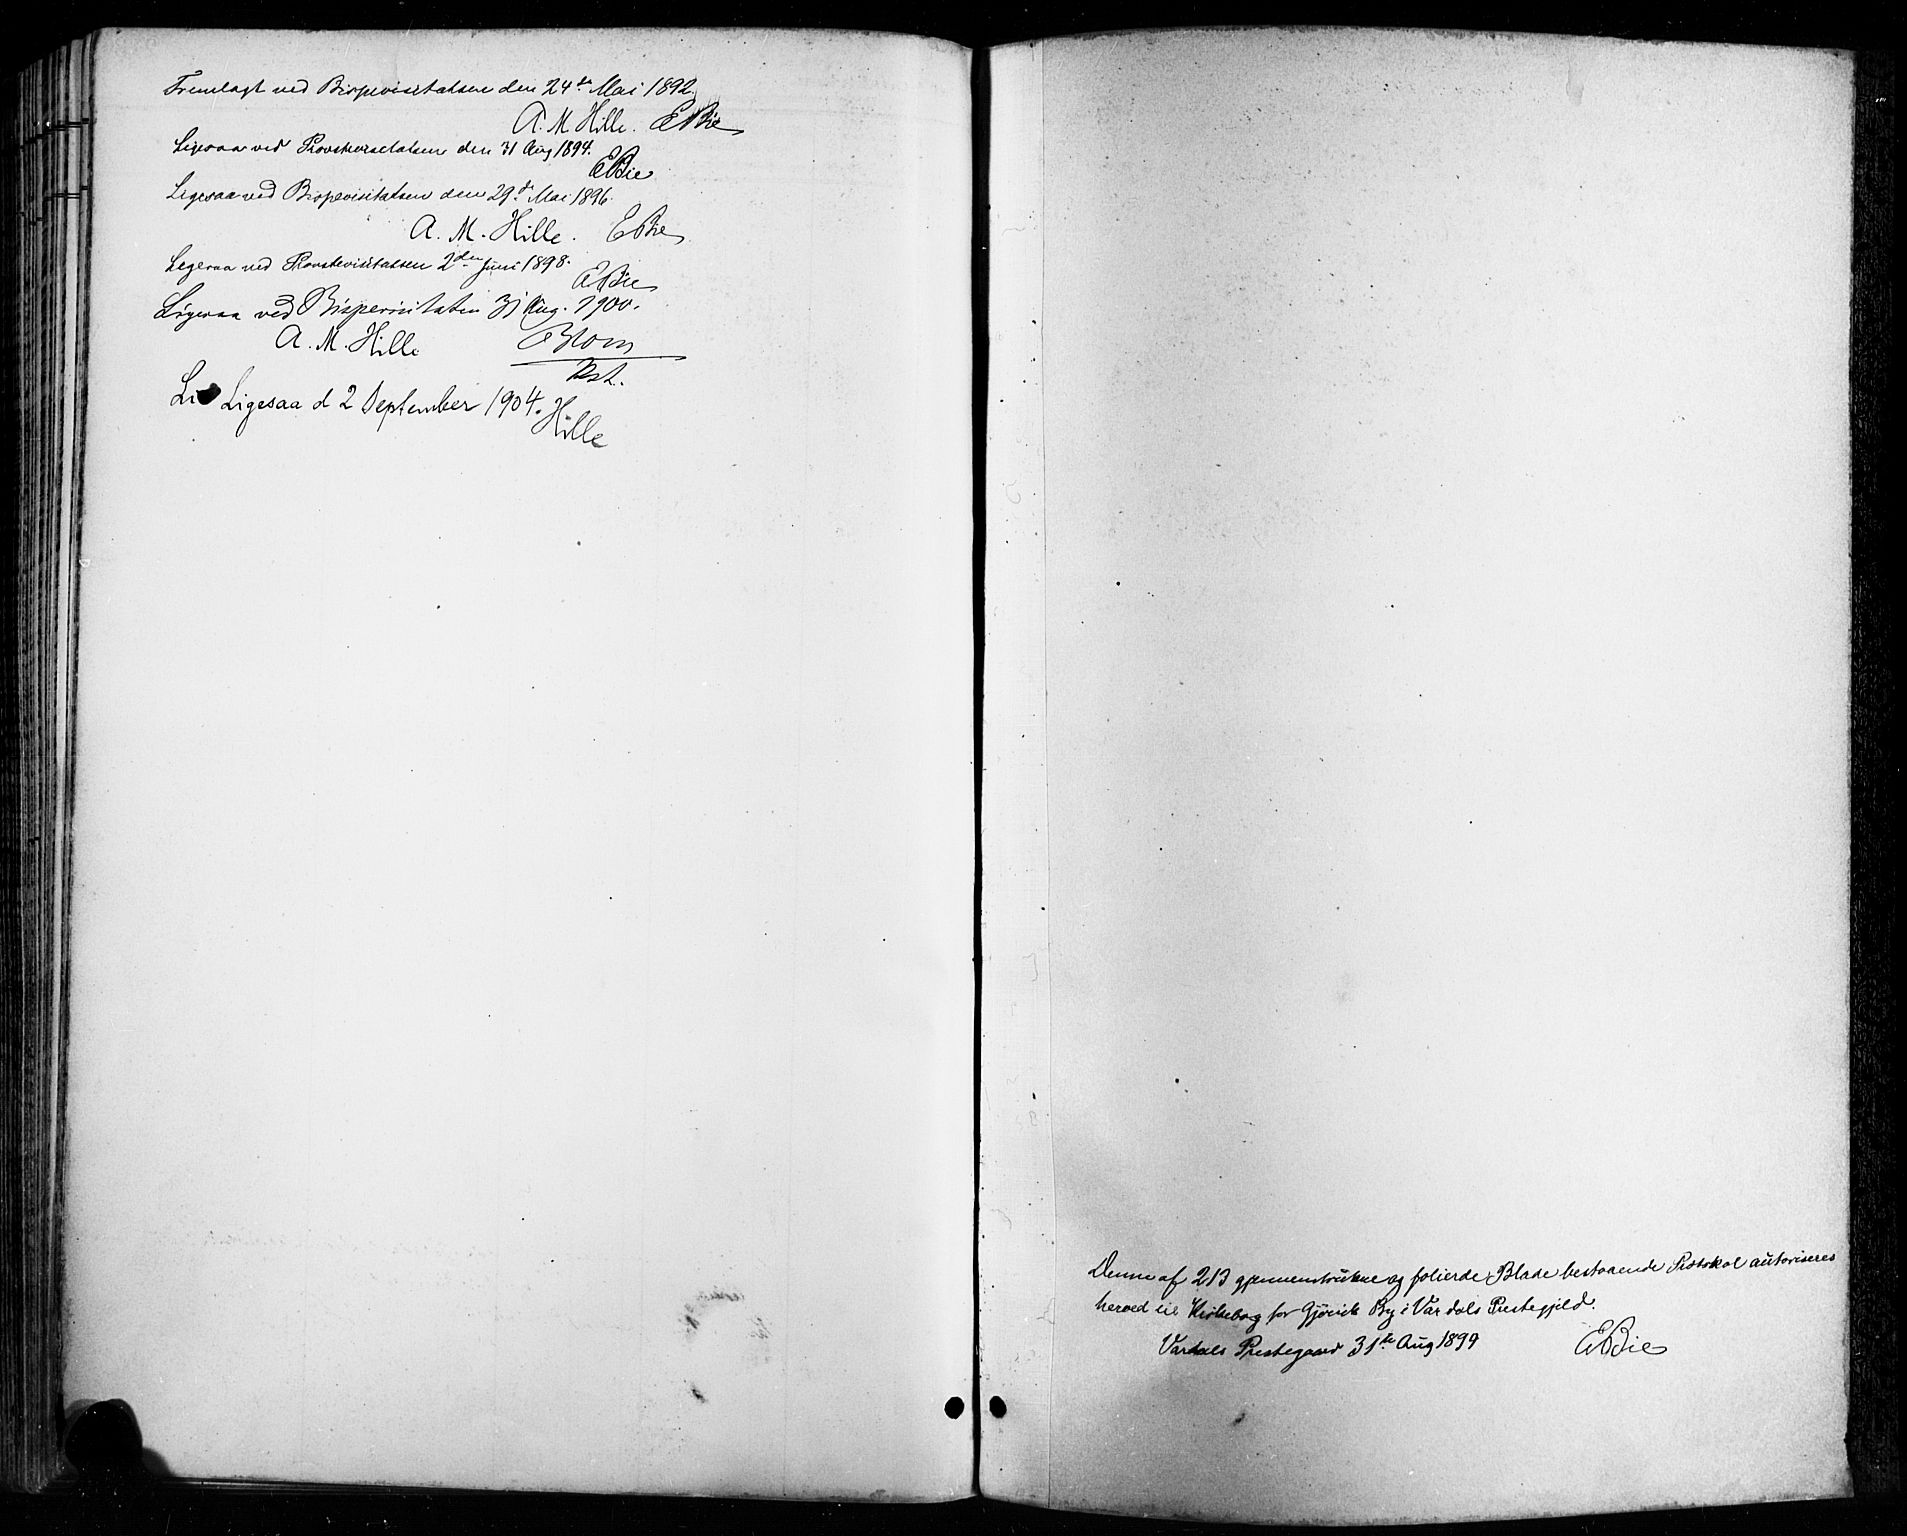 Fremlagt ved Bispevisitatsen den 24de Mai 1892.
A. M Hille. EBie
Ligesaa ved Provstevisitatsen den 31 Aug 1894.
EBie
Ligesaa ved Bispevisitatsen den 29de Mai 1896.
A. M. Hille. EBie
Ligesaa ved Provstevisitatsen 2den Juni 1898.
EBie
Ligesaa ved Bispevisitatsen 31 Aug. 1900.
A. M. Hille Blom
Li Ligesaa d 2 September 1904.
Hille
Denne af 213 gjennemtrukne og folierde Blade bestaaende Protokol autoriseres
herved til Kirkebog for Gjøvik By i Vardals Prestegjeld.
Vardals Prestegaard 31te Aug 1899 EBie